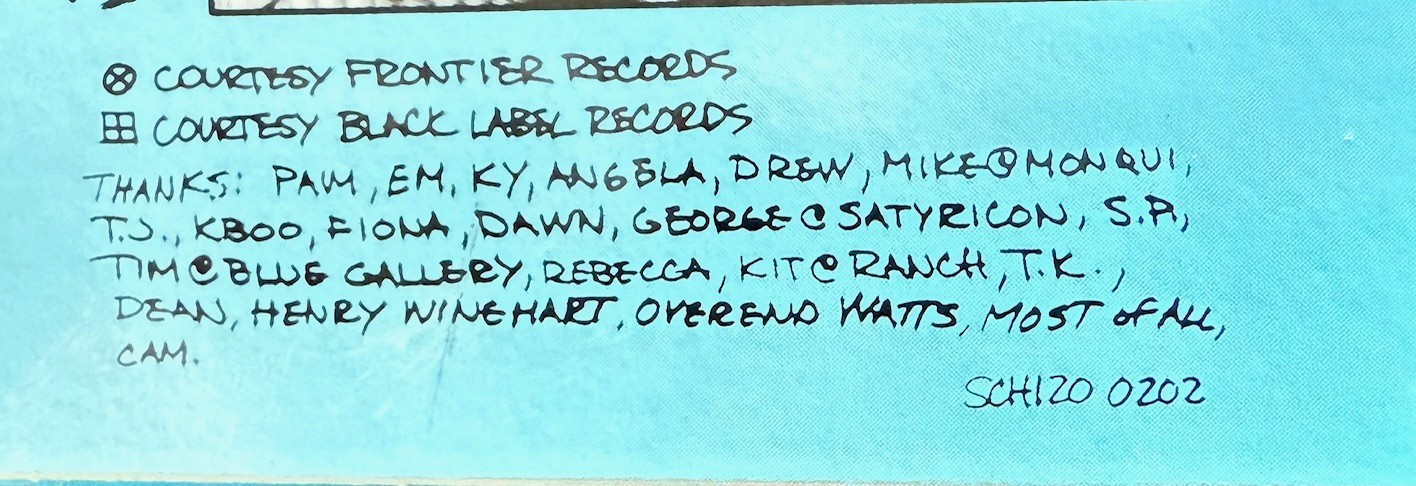 ⊗ COURTESY FRONTIER RECORDS
⊞ COURTESY BLACK LABEL RECORDS
THANKS: PAM, EM, KY, ANGELA, DREW, MIKE@MONQUI,
T.J., KBOO, FIONA, DAWN, GEORGE@SATYRICON, S.P.,
TIM@BLUE GALLERY, REBECCA, KIT@RANCH, T.K.,
DEAN, HENRY WINEHART, OVEREND WATTS, MOST OF ALL,
CAM.
SCHIZO 0202